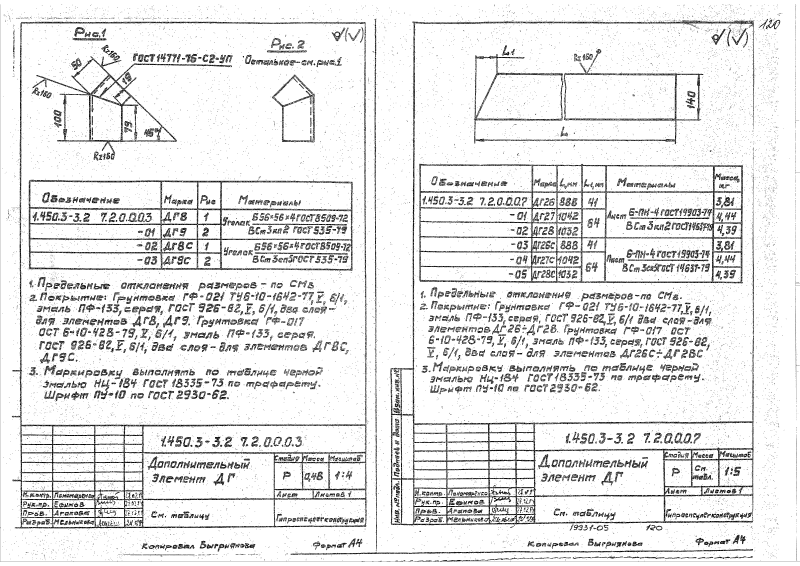 120
Рис.1
Рис. 2
Остальное-см.рис.1
ГОСТ 14771-76-С2-УП
√(√)
Rz160
50
19
Rz160
100
79
45°
Rz160
Обозначение Марка Рис Материалы
1.450.3-3.2 7.2.0.0.0.3 ДГ8 1 Уголок Б56×56×4 ГОСТ 8509-72
-01 ДГ9 2 ВСт3кп2 ГОСТ 535-79
-02 ДГ8С 1 Уголок Б56×56×4 ГОСТ 8509-72
-03 ДГ9С 2 ВСт3сп5 ГОСТ 535-79
1. Предельные отклонения размеров - по СМв.
2. Покрытие: Грунтовка ГФ-021 ТУ6-10-1642-77, V, б/1,
эмаль ПФ-133, серая, ГОСТ 926-82, V, б/1, два слоя-
для элементов ДГ8, ДГ9. Грунтовка ГФ-017
ОСТ 6-10-428-79, V, б/1, эмаль ПФ-133, серая.
ГОСТ 926-82, V, б/1, два слоя - для элементов ДГ8С,
ДГ9С.
3. Маркировку выполнять по таблице черной
эмалью НЦ-184 ГОСТ 18335-73 по трафарету.
Шрифт ПУ-10 по ГОСТ 2930-62.
1.450.3-3.2 7.2.0.0.0.3
Дополнительный
элемент ДГ
Стадия Масса Масштаб
Р 0,48 1:4
Лист Листов 1
Н.контр. Пономаренко
Рук.пр. Ефимов
Пров. Агапова
Разраб. Мельникова
См. таблицу
Гипроспецлегконструкция
Копировал Выгриянова Формат А4
√(√)
L1
Rz160
140
L
Обозначение Марка L,мм L1,мм Материалы Масса, кг
1.450.3-3.2 7.2.0.0.0.7 ДГ26 888 41 Лист Б-ПН-4 ГОСТ 19903-74 3,81
-01 ДГ27 1042 64 ВСт3кп2 ГОСТ 14637-79 4,44
-02 ДГ28 1032 4,39
-03 ДГ26С 888 41 Лист Б-ПН-4 ГОСТ 19903-74 3,81
-04 ДГ27С 1042 64 ВСт3сп5 ГОСТ 14637-79 4,44
-05 ДГ28С 1032 4,39
1. Предельные отклонения размеров-по СМв.
2. Покрытие: Грунтовка ГФ-021 ТУ6-10-1642-77, V, б/1,
эмаль ПФ-133, серая, ГОСТ 926-82, V, б/1, два слоя-для
элементов ДГ26÷ДГ28. Грунтовка ГФ-017 ОСТ
6-10-428-79, V, б/1, эмаль ПФ-133, серая, ГОСТ 926-82,
V, б/1, два слоя - для элементов ДГ26С÷ДГ28С
3. Маркировку выполнять по таблице черной
эмалью НЦ-184 ГОСТ 18335-73 по трафарету.
Шрифт ПУ-10 по ГОСТ 2930-62.
Инв.№подл. Подпись и дата Взам.инв.№
1.450.3-3.2 7.2.0.0.0.7
Дополнительный
элемент ДГ
Стадия Масса Масштаб
Р См. табл. 1:5
Лист Листов 1
Н.контр. Пономаренко
Рук.пр. Ефимов
Пров. Агапова
Разраб. Мельникова
См. таблицу
Гипроспецлегконструкция
19931-05 120
Копировал Выгриянова Формат А4